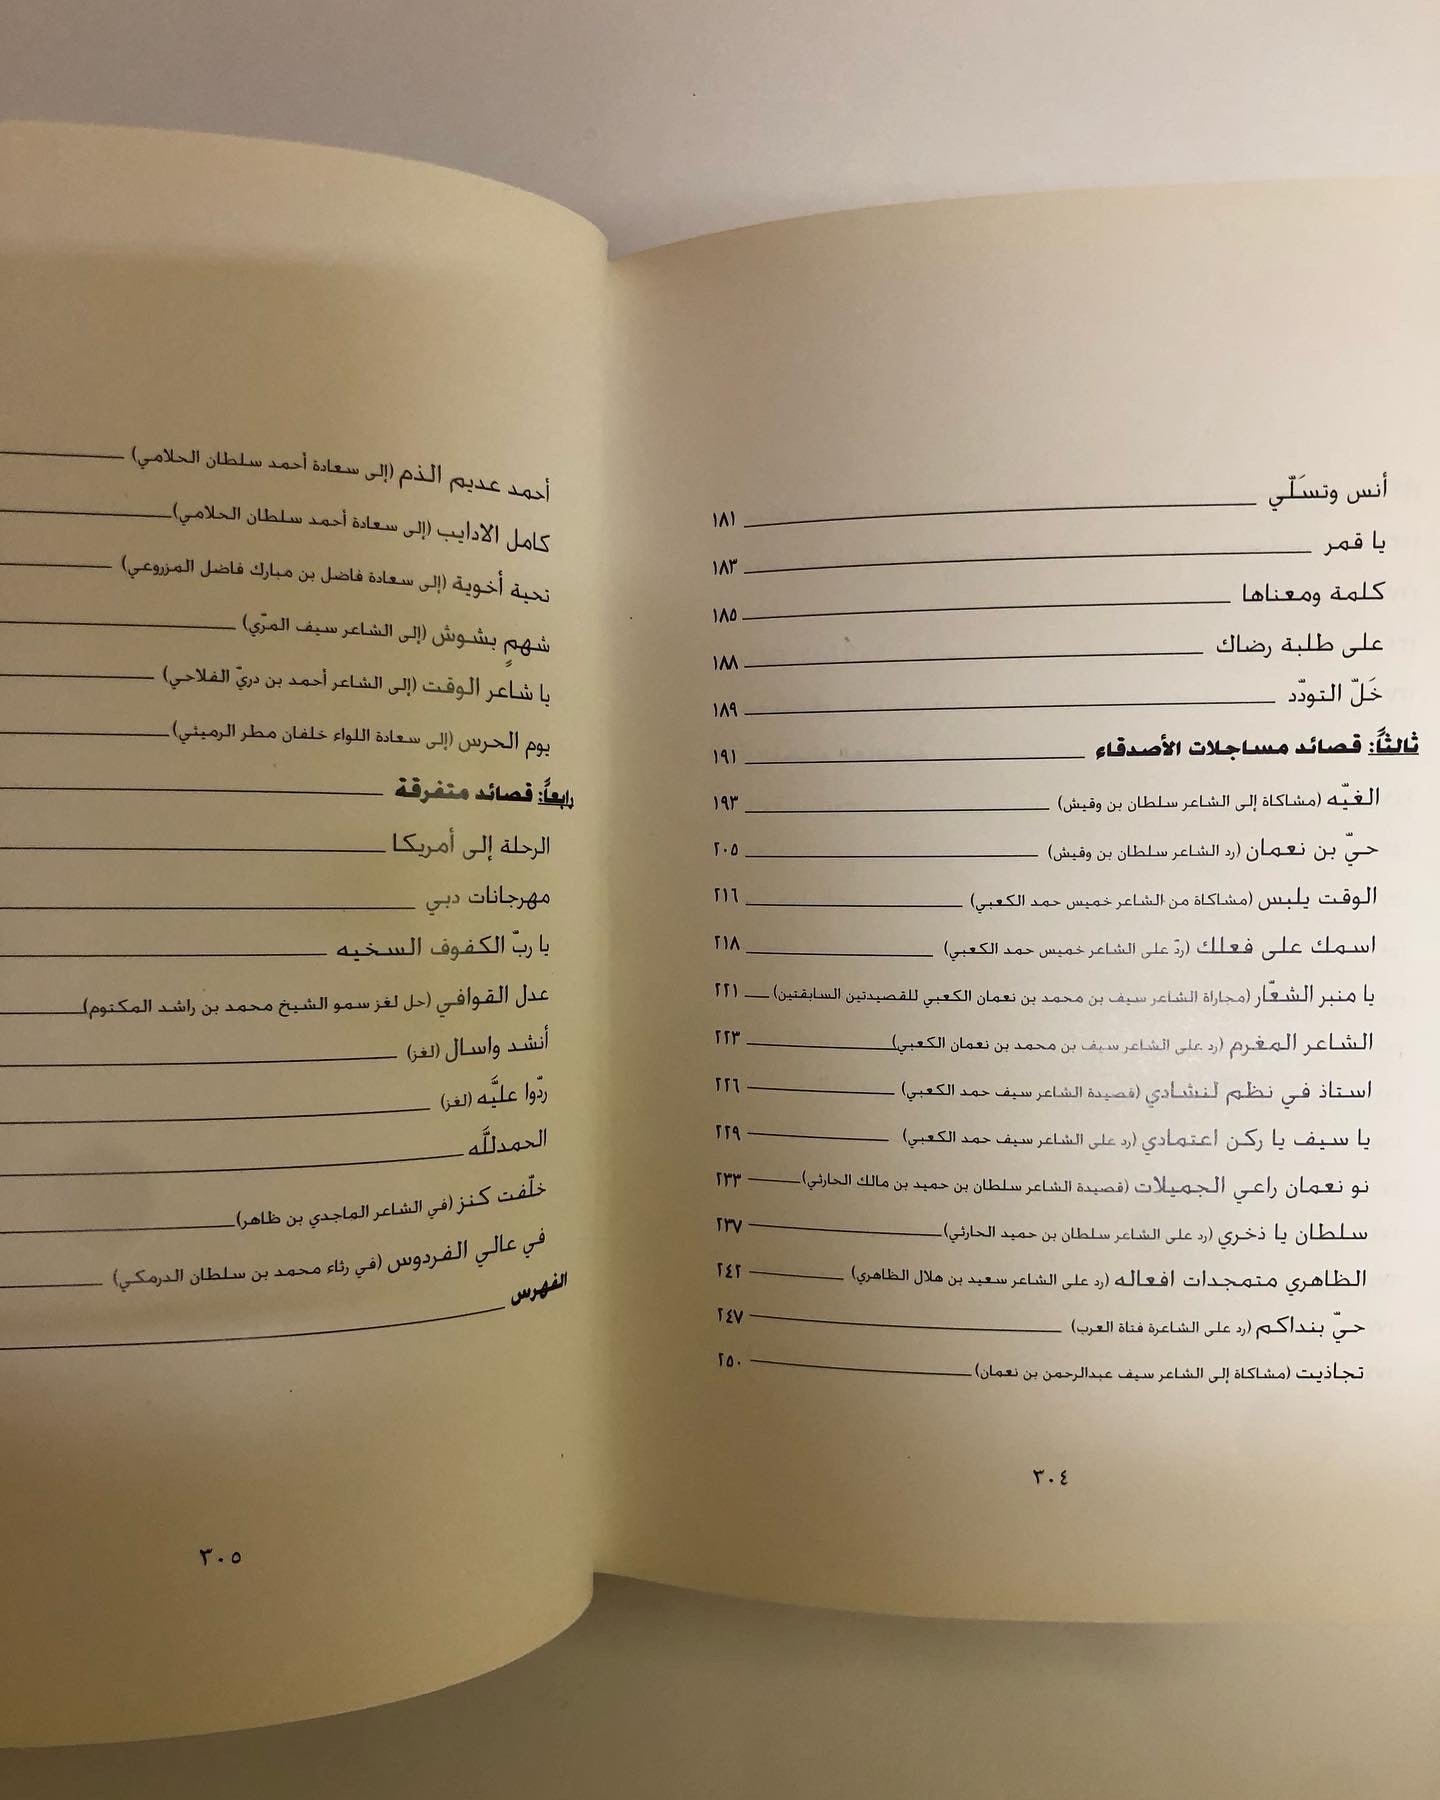 أنس وتسَلّي ١٨١
يا قمر ١٨٣
كلمة ومعناها ١٨٥
على طلبة رضاك ١٨٨
خَلّ التودّد ١٨٩
ثالثاً: قصائد مساجلات الأصدقاء ١٩١
الغيّه (مشاكاة إلى الشاعر سلطان بن وقيش) ١٩٣
حيّ بن نعمان (رد الشاعر سلطان بن وقيش) ٢٠٥
الوقت يلبس (مشاكاة من الشاعر خميس حمد الكعبي) ٢١٦
اسمك على فعلك (ردّ على الشاعر خميس حمد الكعبي) ٢١٨
يا منبر الشعّار (مجاراة الشاعر سيف بن محمد بن نعمان الكعبي للقصيدتين السابقتين) ٢٢١
الشاعر المغرم (رد على الشاعر سيف بن محمد بن نعمان الكعبي) ٢٢٣
استاذ في نظم لنشادي (قصيدة الشاعر سيف حمد الكعبي) ٢٢٦
يا سيف يا ركن اعتمادي (رد على الشاعر سيف حمد الكعبي) ٢٢٩
نو نعمان راعي الجميلات (قصيدة الشاعر سلطان بن حميد بن مالك الحارثي) ٢٣٣
سلطان يا ذخري (رد على الشاعر سلطان بن حميد الحارثي) ٢٣٧
الظاهري متمجدات افعاله (رد على الشاعر سعيد بن هلال الظاهري) ٢٤٢
حيّ بنداكم (رد على الشاعرة فتاة العرب) ٢٤٧
تجاذيت (مشاكاة إلى الشاعر سيف عبدالرحمن بن نعمان) ٢٥٠
٣٠٤
أحمد عديم الذم (إلى سعادة أحمد سلطان الحلامي)
كامل الادايب (إلى سعادة أحمد سلطان الحلامي)
تحية أخوية (إلى سعادة فاضل بن مبارك فاضل المزروعي)
شهمٍ بشوش (إلى الشاعر سيف المرّي)
يا شاعر الوقت (إلى الشاعر أحمد بن دريّ الفلاحي)
يوم الحرس (إلى سعادة اللواء خلفان مطر الرميثي)
رابعاً: قصائد متفرقة
الرحلة إلى أمريكا
مهرجانات دبي
يا ربّ الكفوف السخيه
عدل القوافي (حل لغز سمو الشيخ محمد بن راشد المكتوم)
أنشد واسال (لغز)
ردّوا عليَّه (لغز)
الحمدللَّه
خلّفت كنز (في الشاعر الماجدي بن ظاهر)
في عالي الفردوس (في رثاء محمد بن سلطان الدرمكي)
الفهرس
٣٠٥